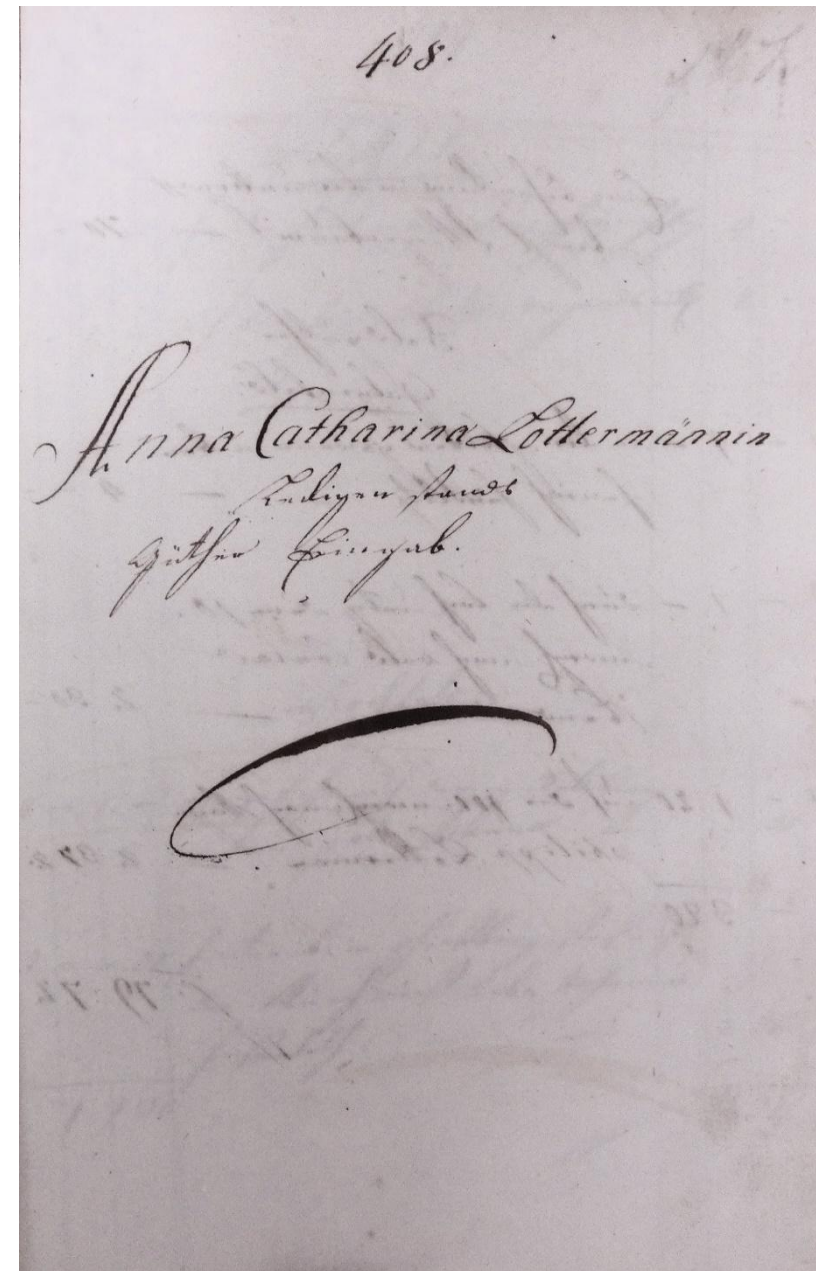 408.
Anna Catharina Lottermännin
Ledigen stands
Güther Eingab.